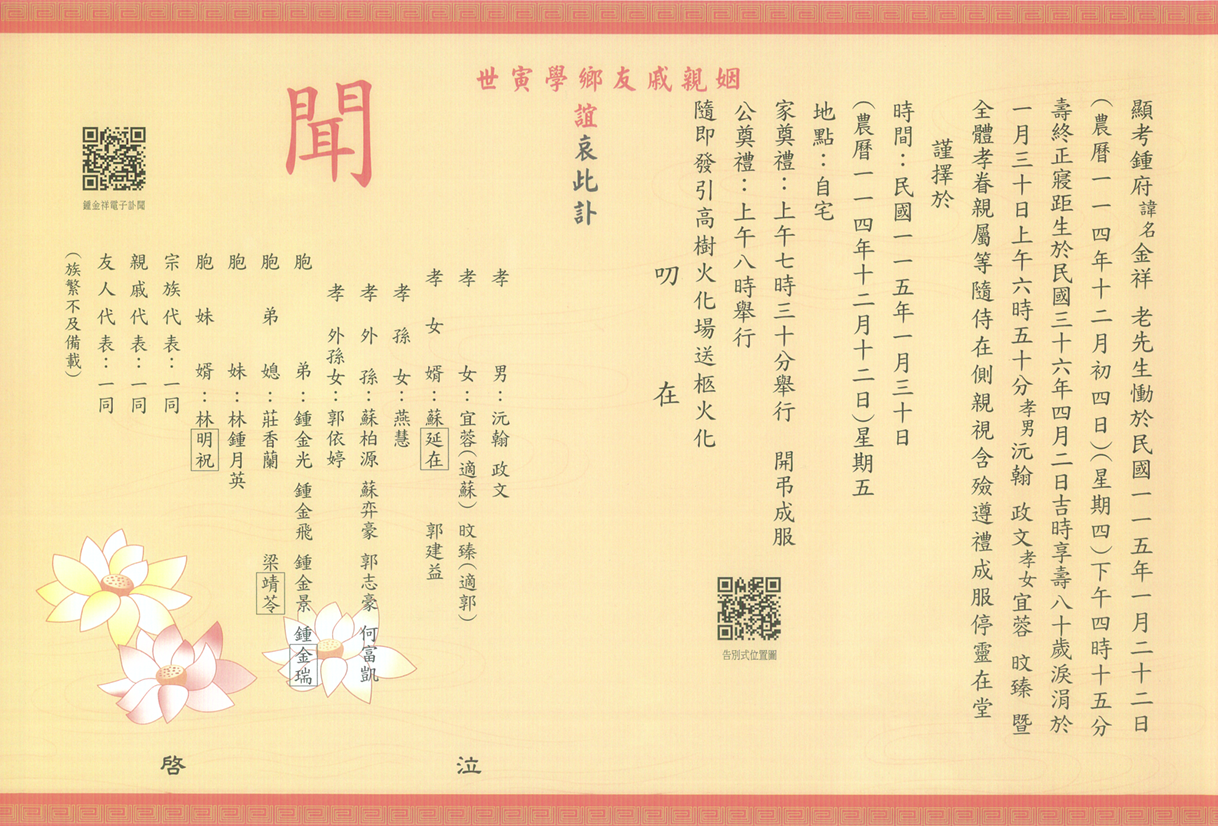 顯考鍾府諱名金祥 老先生慟於民國一一五年一月二十二日
(農曆一一四年十二月初四日)(星期四)下午四時十五分
壽終正寢距生於民國三十六年四月二日吉時享壽八十歲淚涓於
一月三十日上午六時五十分孝男沅翰 政文孝女宜蓉 旼臻 暨
全體孝眷親屬等隨侍在側親視含殮遵禮成服停靈在堂
謹擇於
時間：民國一一五年一月三十日
(農曆一一四年十二月十二日)星期五
地點：自宅
家奠禮：上午七時三十分舉行 開弔成服
公奠禮：上午八時舉行
隨即發引高樹火化場送柩火化
告別式位置圖
叨在
姻親戚友鄉學寅世
誼哀此訃
聞
孝男：沅翰 政文
孝女：宜蓉(適蘇) 旼臻(適郭)
孝女婿：蘇延在 郭建益
孝孫女：燕慧
孝外孫：蘇柏源 蘇弈豪 郭志豪 何富凱
孝外孫女：郭依婷
胞弟：鍾金光 鍾金飛 鍾金景 鍾金瑞
胞弟媳：莊香蘭 梁靖苓
胞妹：林鍾月英
胞妹婿：林明祝
宗族代表：一同
親戚代表：一同
友人代表：一同
(族繁不及備載)
泣啓
鍾金祥電子訃聞